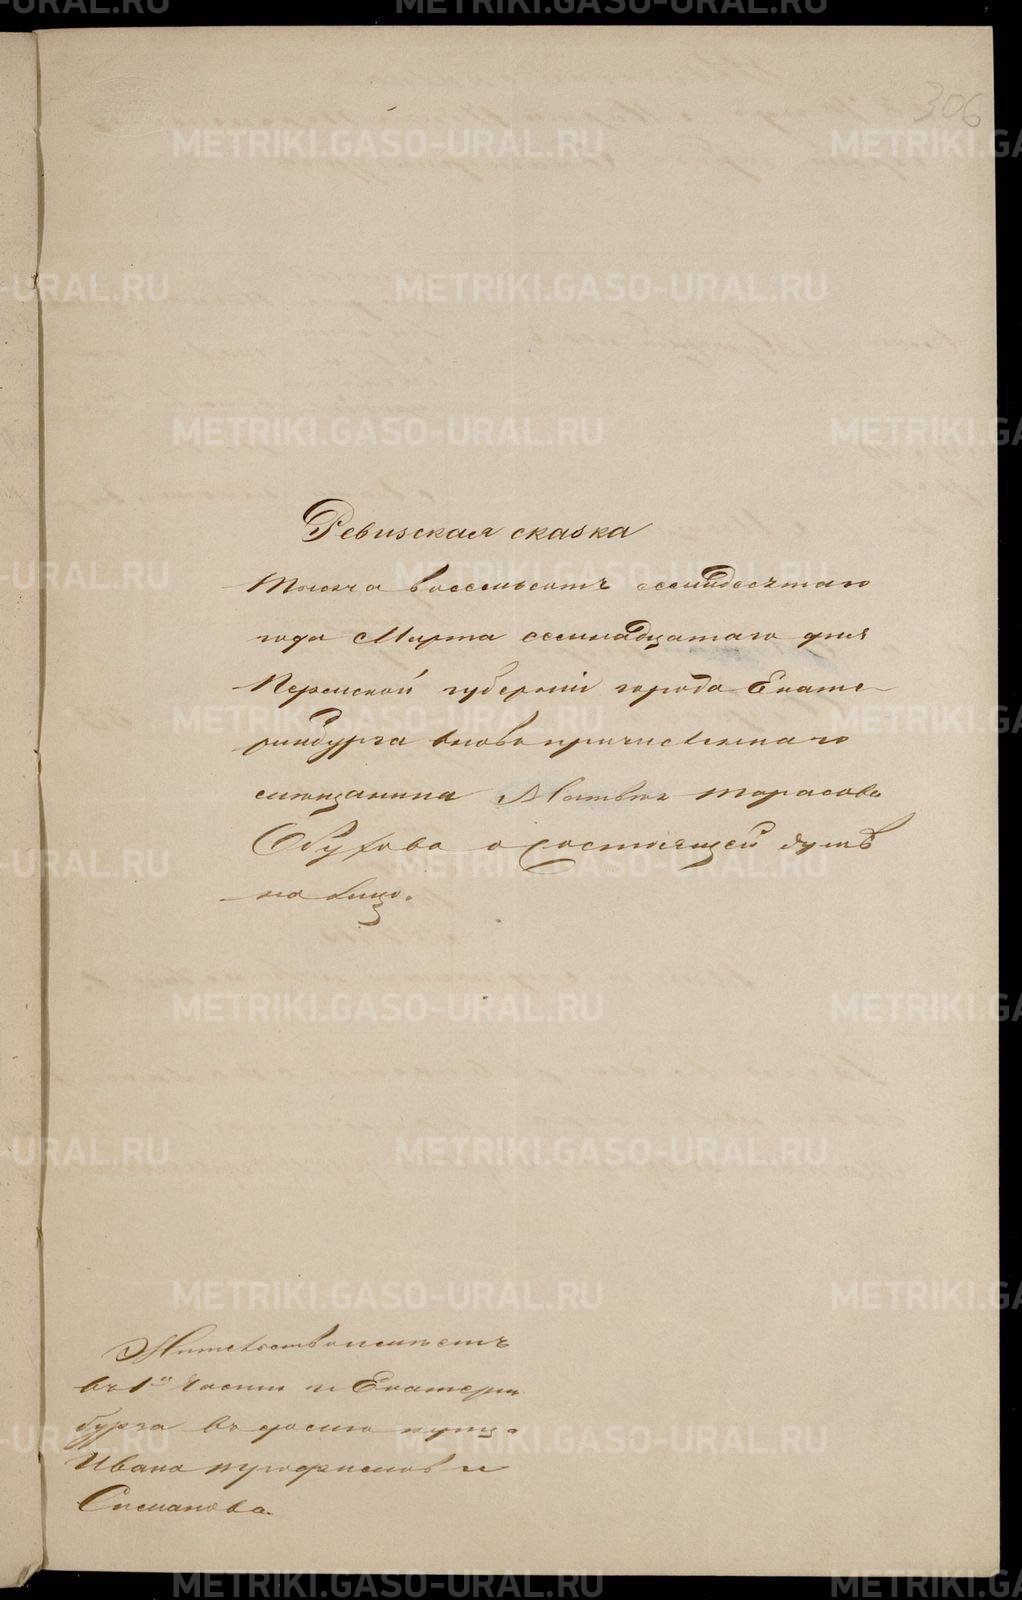 306
Ревизская сказка
Тысяча восемьсотъ семидесятаго
года Марта семнадцатаго дня
Пермской губерніи города Екате-
ринбурга вновь причисленнаго
мещанина Матвея Тарасова
Обухова о состоящей душѣ
на лицо.
Жительство имеетъ
въ 1й части г. Екатерин
бурга въ доме купца
Ивана
METRIKI.GASO-URAL.RU